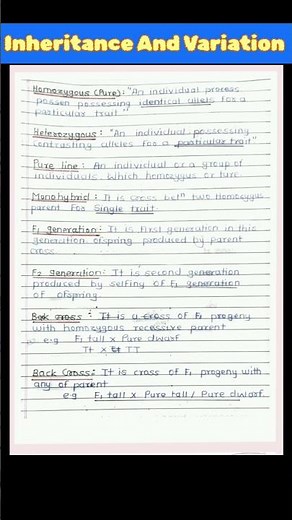 Inheritance And Variation
Homozygous (Pure): "An individual process
possen possessing identical allels for a
particular trait"
Heterozygous: "An individual possessing
contrasting alleles for a particular trait"
Pure line: An individual or a group of
individuals. Which homozygus or ture.
Monohybrid: It is cross betn two Homozygus
parent For Single trait.
F1 generation: It is First generation in this
generation ofspring produced by parent
cross.
F2 generation: It is second generation
produced by selfing of F1 generation
of ofspring.
cross: It is a cross of F1 progeny
with homozygous recessive parent
e.g F1 tall x Pure dwarf
Tt x TT
Back Cross: It is crass of F1 progeny with
any of parent
eg F1 tall x Pure tall / Pure dwarf.